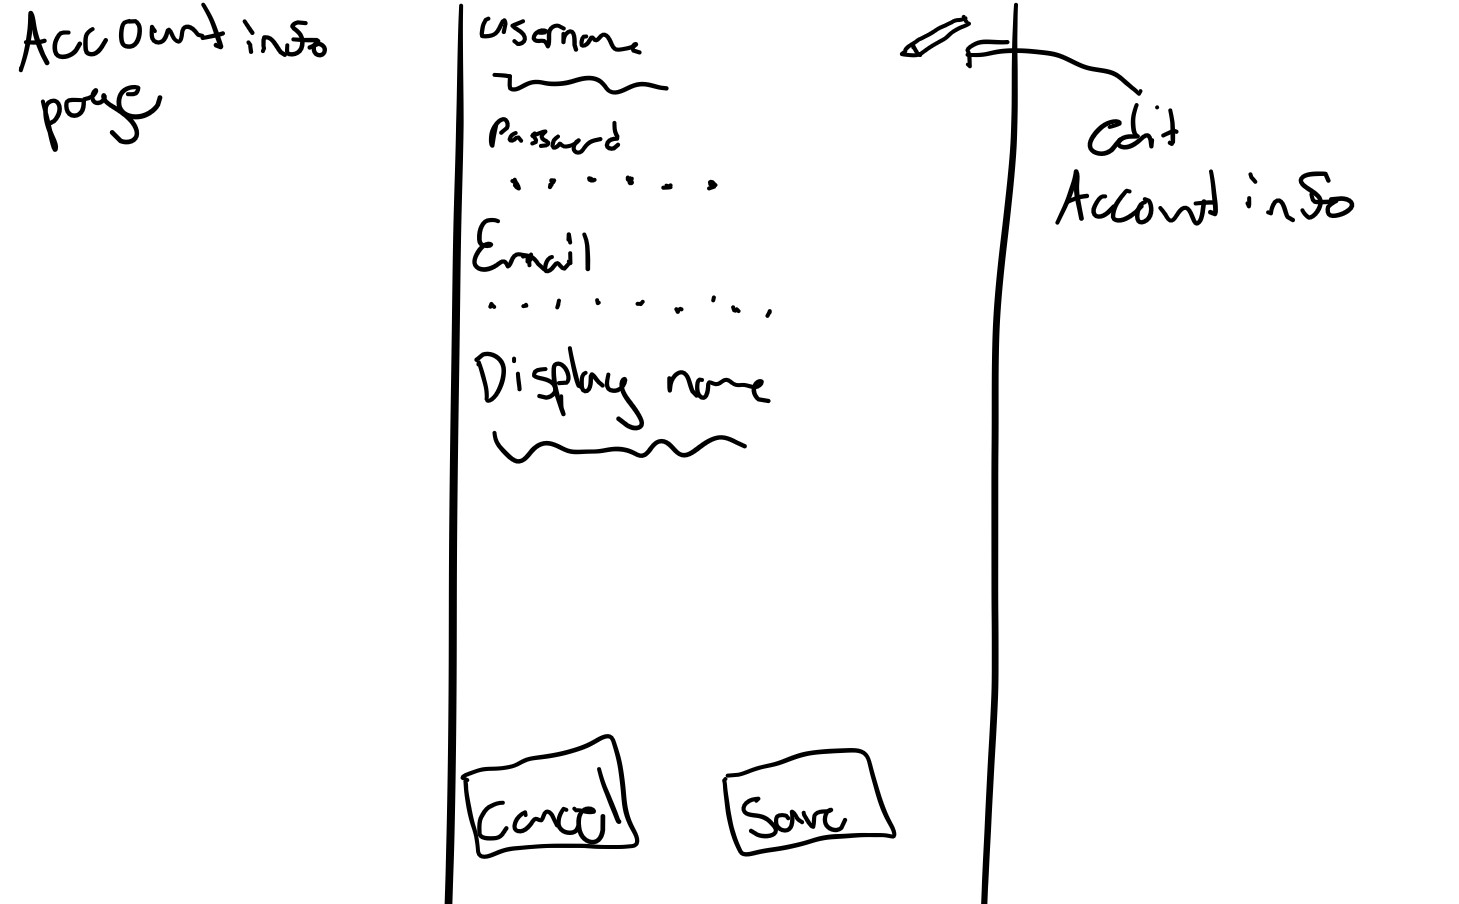 Account info
page
Username
Password
Email
Display name
Cancel
Save
edit
Account info